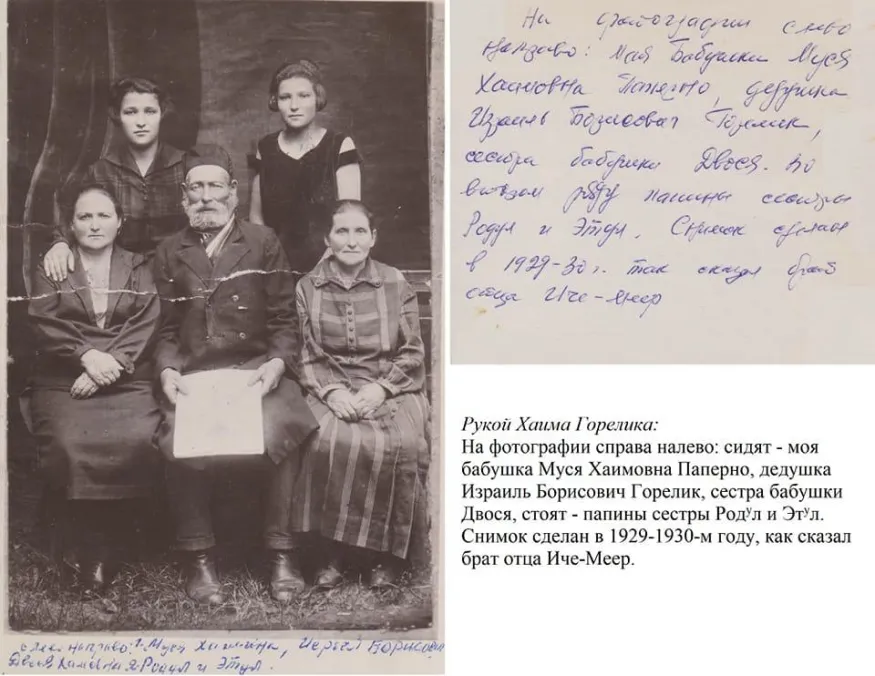 На фотографии слево
направо: моя Бабушка Муся
Хаимовна Паперно, дедушка
Израиль Борисович Горелик,
сестра бабушки Двося. Во
втором ряду папины сестры
Родул и Этул. Снимок сделан
в 1929-30 г. так сказал брат
отца Иче-Меер
Рукой Хаима Горелика:
На фотографии справа налево: сидят - моя
бабушка Муся Хаимовна Паперно, дедушка
Израиль Борисович Горелик, сестра бабушки
Двося, стоят - папины сестры Родул и Этул.
Снимок сделан в 1929-1930-м году, как сказал
брат отца Иче-Меер.
направо: Муся Хаимовна, Борисович
Двося Хаимовна Родул и Этул.